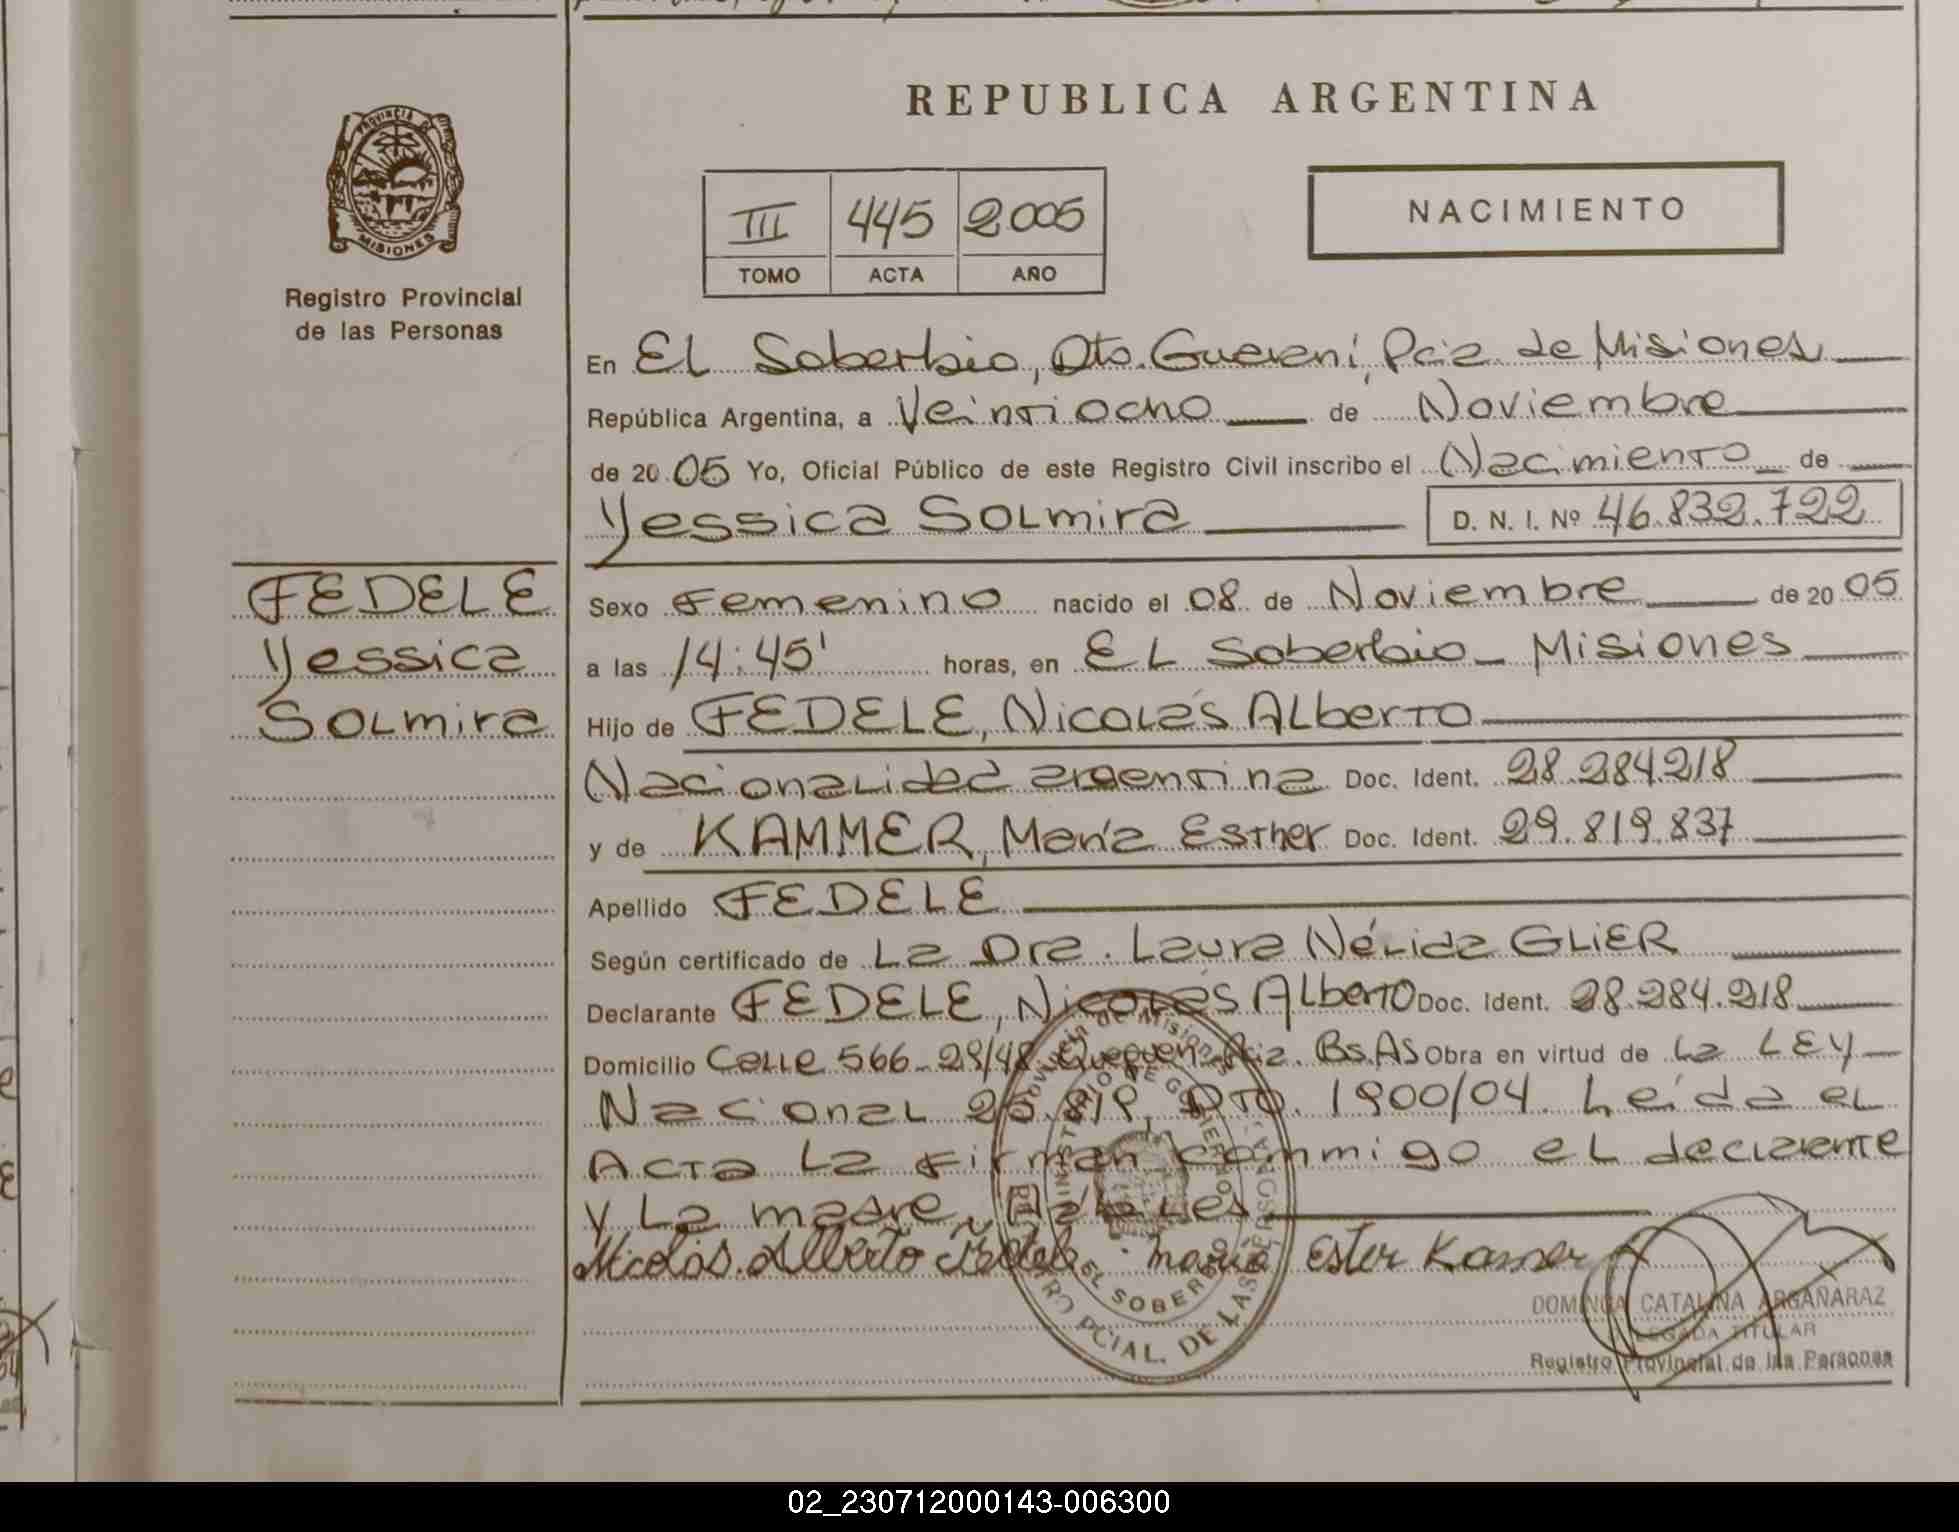 REPUBLICA ARGENTINA
PROVINCIA DE
MISIONES
Registro Provincial
de las Personas
III 445 2005
TOMO ACTA AÑO
NACIMIENTO
En El Soberbio, Dto. Guaraní, Pcia de Misiones
República Argentina, a Veintiocho de Noviembre
de 2005 Yo, Oficial Público de este Registro Civil inscribo el Nacimiento de
Yessica Solmira D. N. I. Nº 46.832.722
FEDELE
Yessica
Solmira
Sexo Femenino nacido el 08 de Noviembre de 2005
a las 14:45' horas, en El Soberbio - Misiones
Hijo de FEDELE, Nicolás Alberto
Nacionalidad argentina Doc. Ident. 28.284.218
y de KAMMER, María Esther Doc. Ident. 29.819.837
Apellido FEDELE
Según certificado de La Dra. Laura Nélida GLIER
Declarante FEDELE, Nicolás Alberto Doc. Ident. 28.284.218
Domicilio Calle 566-29/48 Quequen Pcia. Bs.As Obra en virtud de La LEY
Nacional 25.819, DTO. 1900/04. Leída el
Acta La firman commigo el declarante
y La madre
Nicolás Alberto Fedele María Ester Kamer
Provincia de Misiones
MINISTERIO DE GOBIERNO
EL SOBERBIO
PCIAL. DE LAS
DOMINGA CATALINA ARGAÑARAZ
DELEGADA TITULAR
Registro Provincial de las Personas
02_230712000143-006300